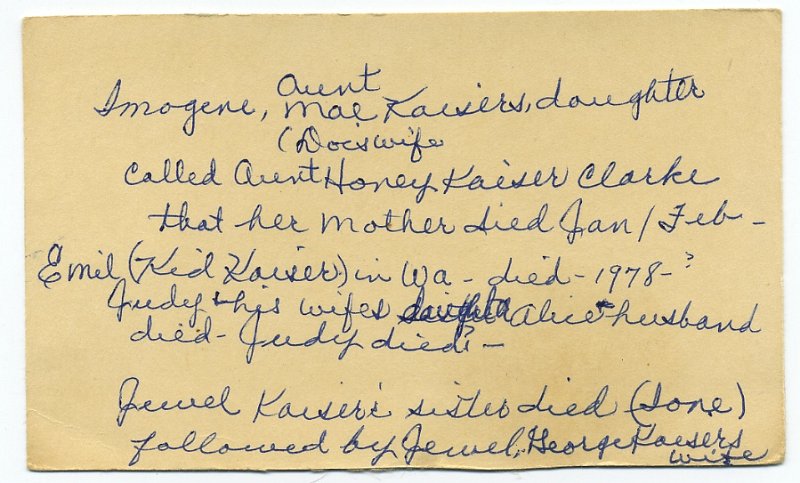 Aunt
Imogene, Mae Kaisers, daughter
(Doc's wife
called Aunt Honey Kaiser Clarke
that her mother died Jan/Feb -
Emil (Kid Kaiser) in Wa - died - 1978 - ?
Judy & his wifes Alice + husband
died - Judy died? -
Jewel Kaiser's sister died (Ione)
followed by Jewel, George Kaisers
wife